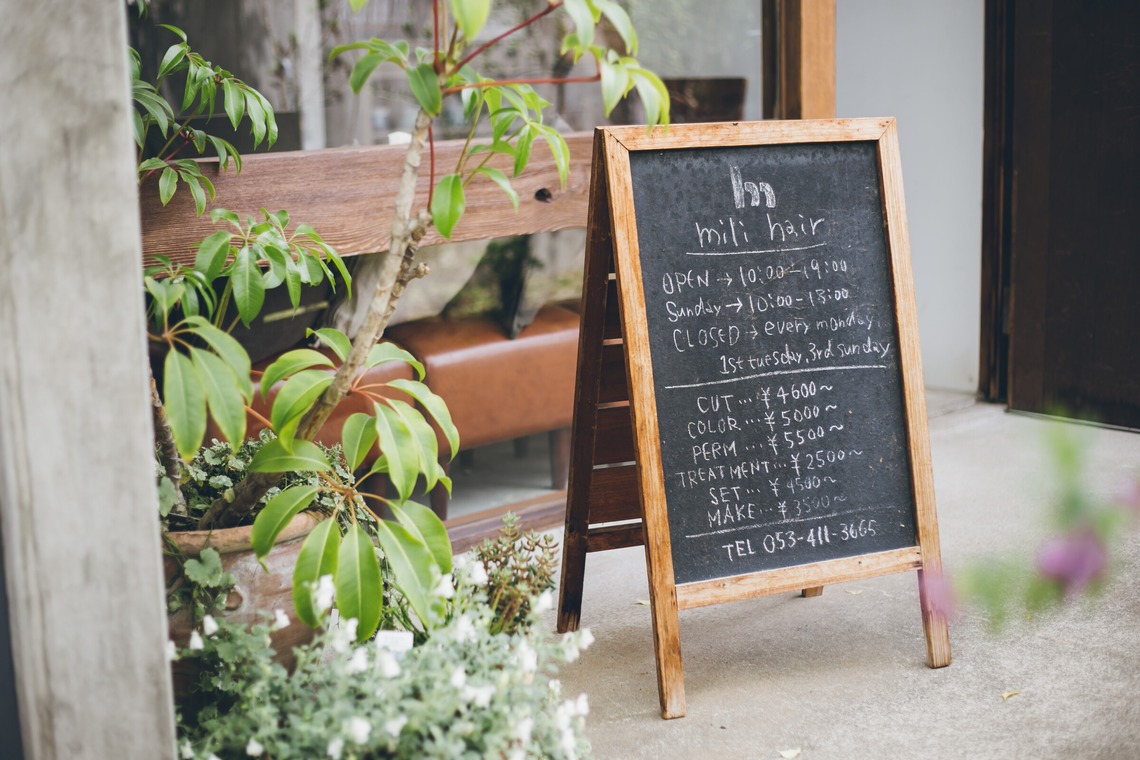 mili hair
OPEN → 10:00-19:00
Sunday → 10:00-18:00
CLOSED → every monday,
1st tuesday, 3rd sunday
CUT… ¥4600~
COLOR… ¥5000~
PERM… ¥5500~
TREATMENT… ¥2500~
SET… ¥4500~
MAKE… ¥3500~
TEL 053-411-3665